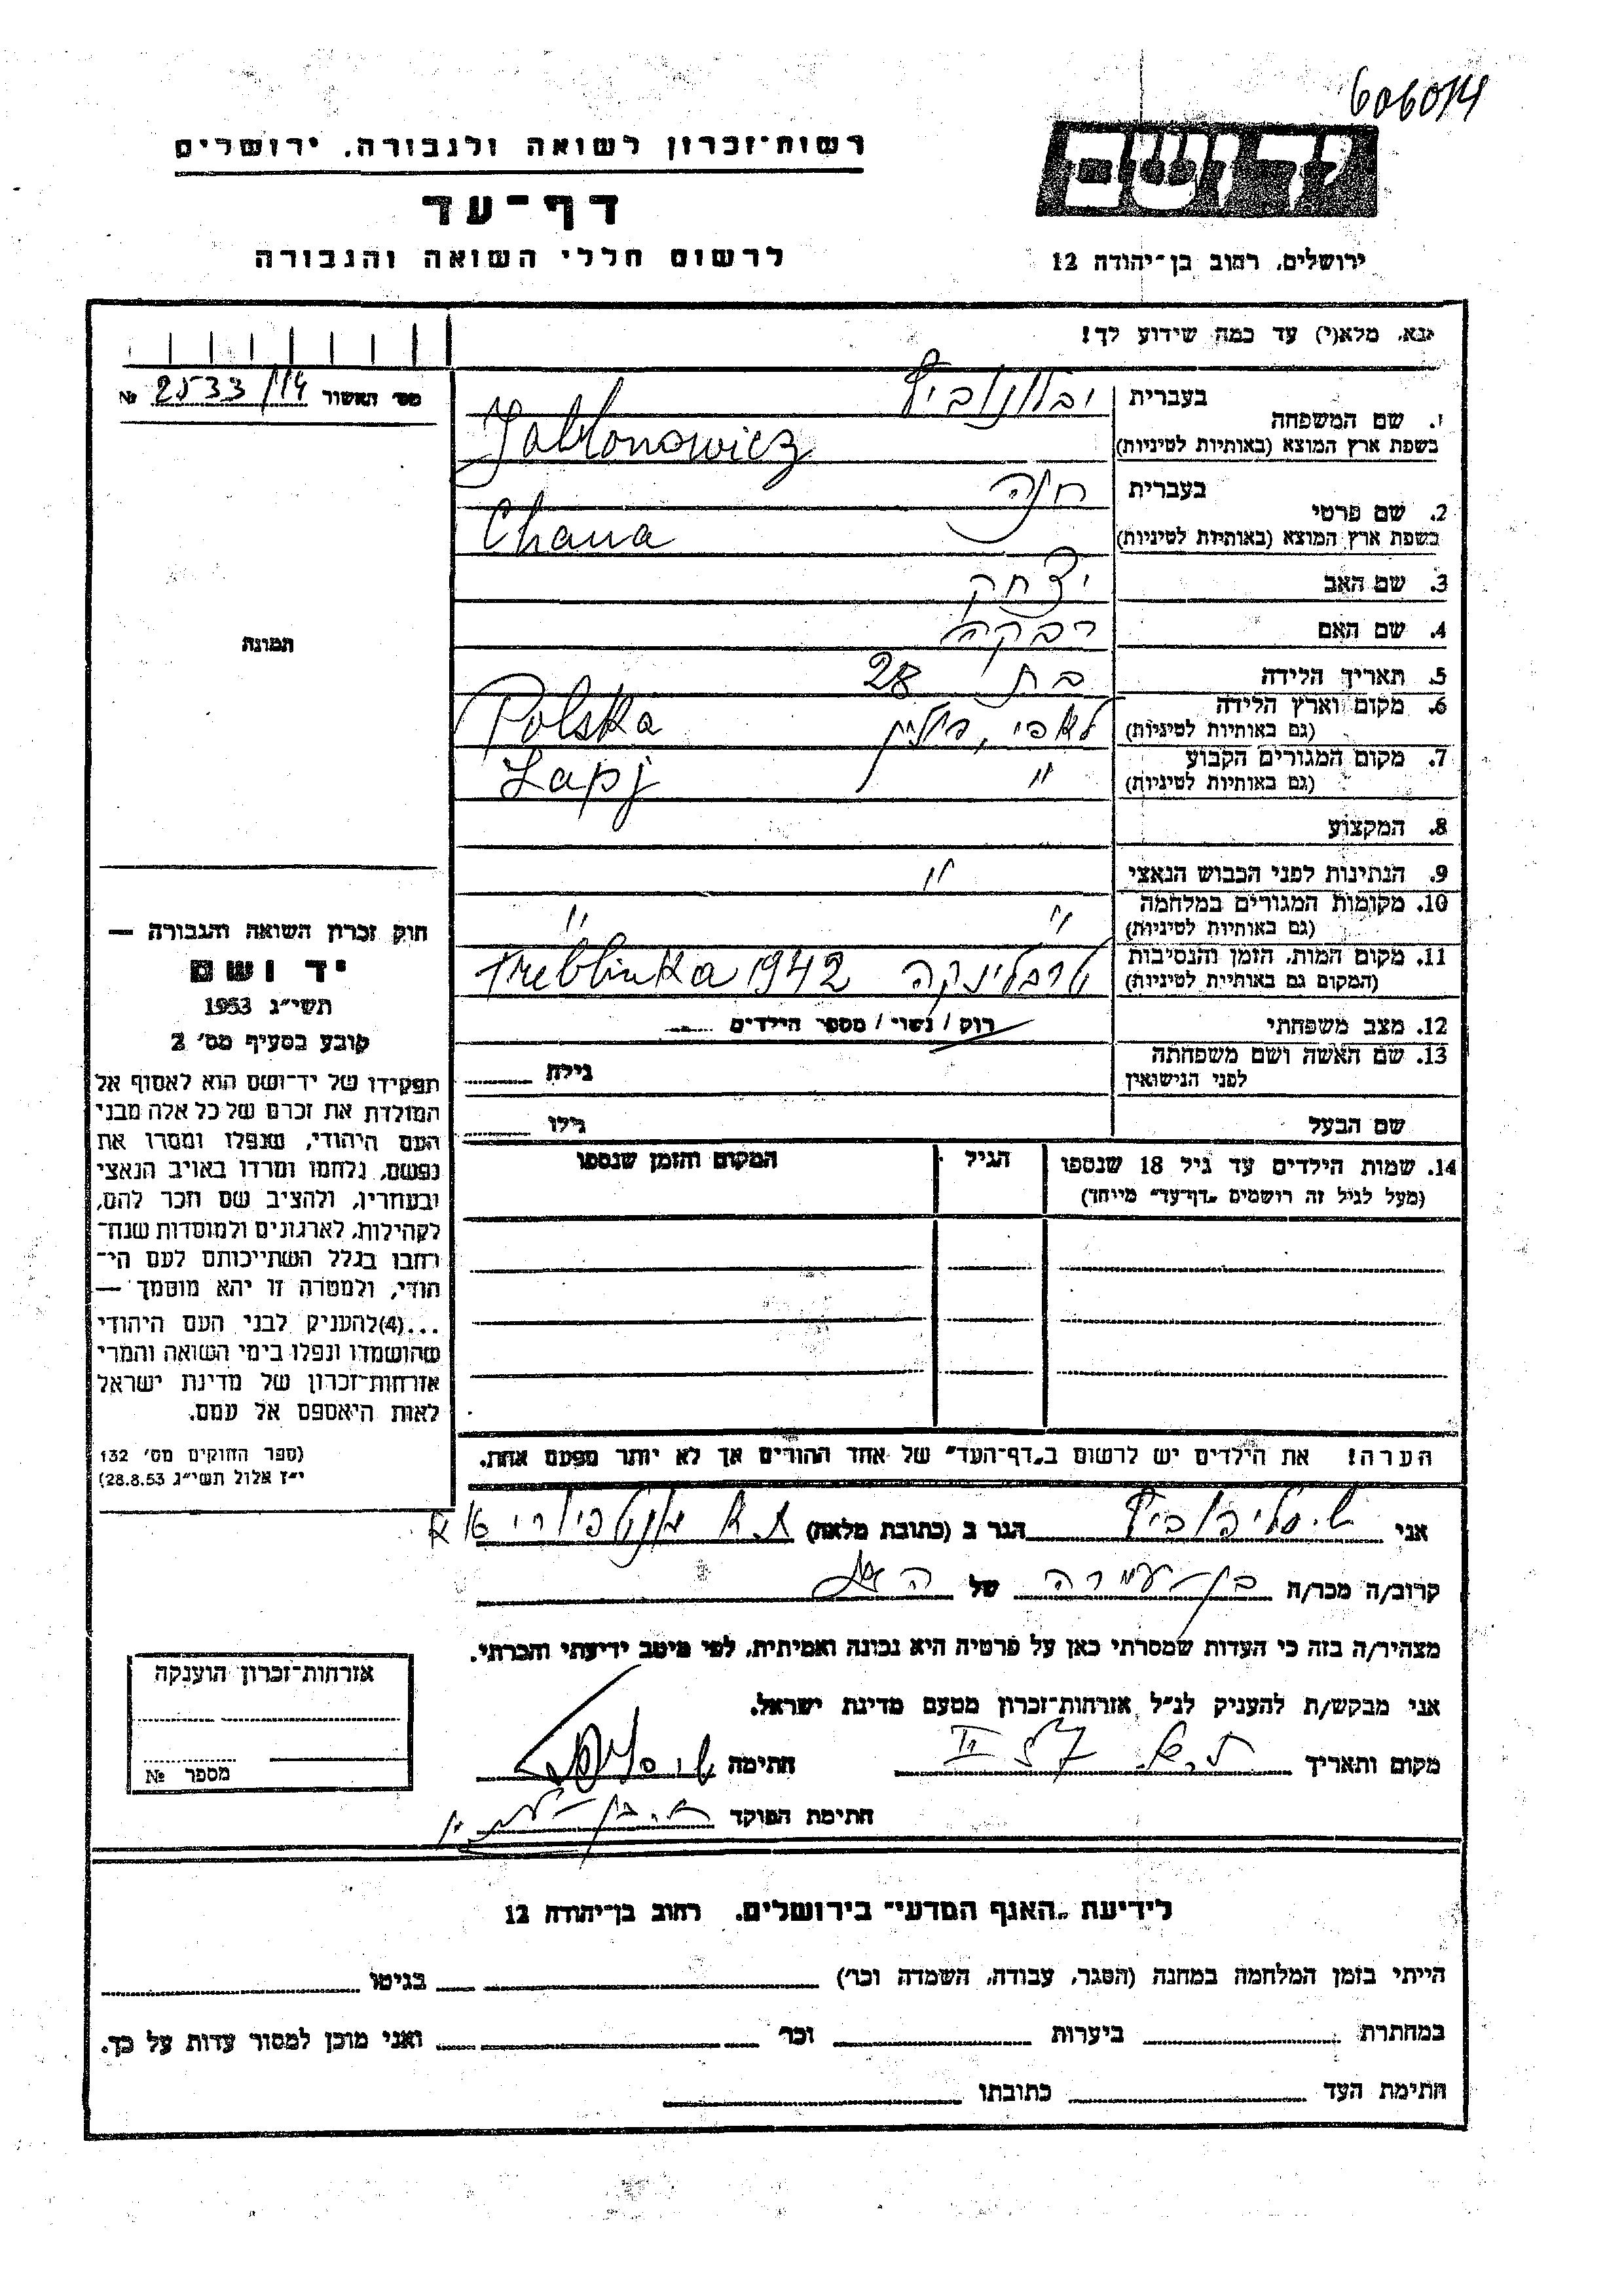 606014
רשות־זכרון לשואה ולגבורה, ירושלים
דף־עד
לרשום חללי השואה והגבורה
יד ושם
ירושלים, רחוב בן־יהודה 12
נא, מלא(י) עד כמה שידוע לך!
מס' האשור 2533/14 №
1. שם המשפחה בעברית יבלונוביץ
בשפת ארץ המוצא (באותיות לטיניות) Jabłonowicz
2. שם פרטי בעברית חנה
בשפת ארץ המוצא (באותיות לטיניות) Chana
3. שם האב יצחק
4. שם האם רבקה
5. תאריך הלידה בת 28
6. מקום וארץ הלידה לאפי, פולין Polska
(גם באותיות לטיניות)
7. מקום המגורים הקבוע " Łapj
(גם באותיות לטיניות)
8. המקצוע
9. הנתינות לפני הכבוש הנאצי "
10. מקומות המגורים במלחמה " "
(גם באותיות לטיניות)
11. מקום המות, הזמן והנסיבות טרבלינקה Treblinka 1942
(המקום גם באותיות לטיניות)
12. מצב משפחתי רוק / נשוי / מספר הילדים
13. שם האשה ושם משפחתה גילה
לפני הנישואין
שם הבעל גילו
14. שמות הילדים עד גיל 18 שנספו הגיל המקום והזמן שנספו
(מעל לגיל זה רושמים "דף־עד" מייחד)
הערה! את הילדים יש לרשום ב"דף־העד" של אחד ההורים אך לא יותר מפעם אחת.
תמונה
חוק זכרון השואה והגבורה —
יד ושם
תשי"ג 1953
קובע בסעיף מס' 2
תפקידו של יד־ושם הוא לאסוף אל
המולדת את זכרם של כל אלה מבני
העם היהודי, שנפלו ומסרו את
נפשם, נלחמו ומרדו באויב הנאצי
ובעוזריו, ולהציב שם וזכר להם,
לקהילות, לארגונים ולמוסדות שנח־
רבו בגלל השתייכותם לעם הי־
הודי, ולמטרה זו יהא מוסמך —
...(4)להעניק לבני העם היהודי
שהושמדו ונפלו בימי השואה והמרי
אזרחות־זכרון של מדינת ישראל
לאות היאספם אל עמם.
(ספר החוקים מס' 132
י"ז אלול תשי"ג 28.8.53)
אני הגר ב (כתובת מלאה) ת.א
קרוב/ה מכר/ה של
מצהיר/ה בזה כי העדות שמסרתי כאן על פרטיה היא נכונה ואמיתית, לפי מיטב ידיעתי והכרתי.
אני מבקש/ת להעניק לנ"ל אזרחות־זכרון מטעם מדינת ישראל.
מקום ותאריך ת.א. חתימה
חתימת הפוקד
אזרחות־זכרון הוענקה
מספר №
לידיעת "האגף המדעי" בירושלים, רחוב בן־יהודה 12
הייתי בזמן המלחמה במחנה (הסגר, עבודה, השמדה וכו') בגיטו
במחתרת ביערות וכו' ואני מוכן למסור עדות על כך.
חתימת העד כתובתו